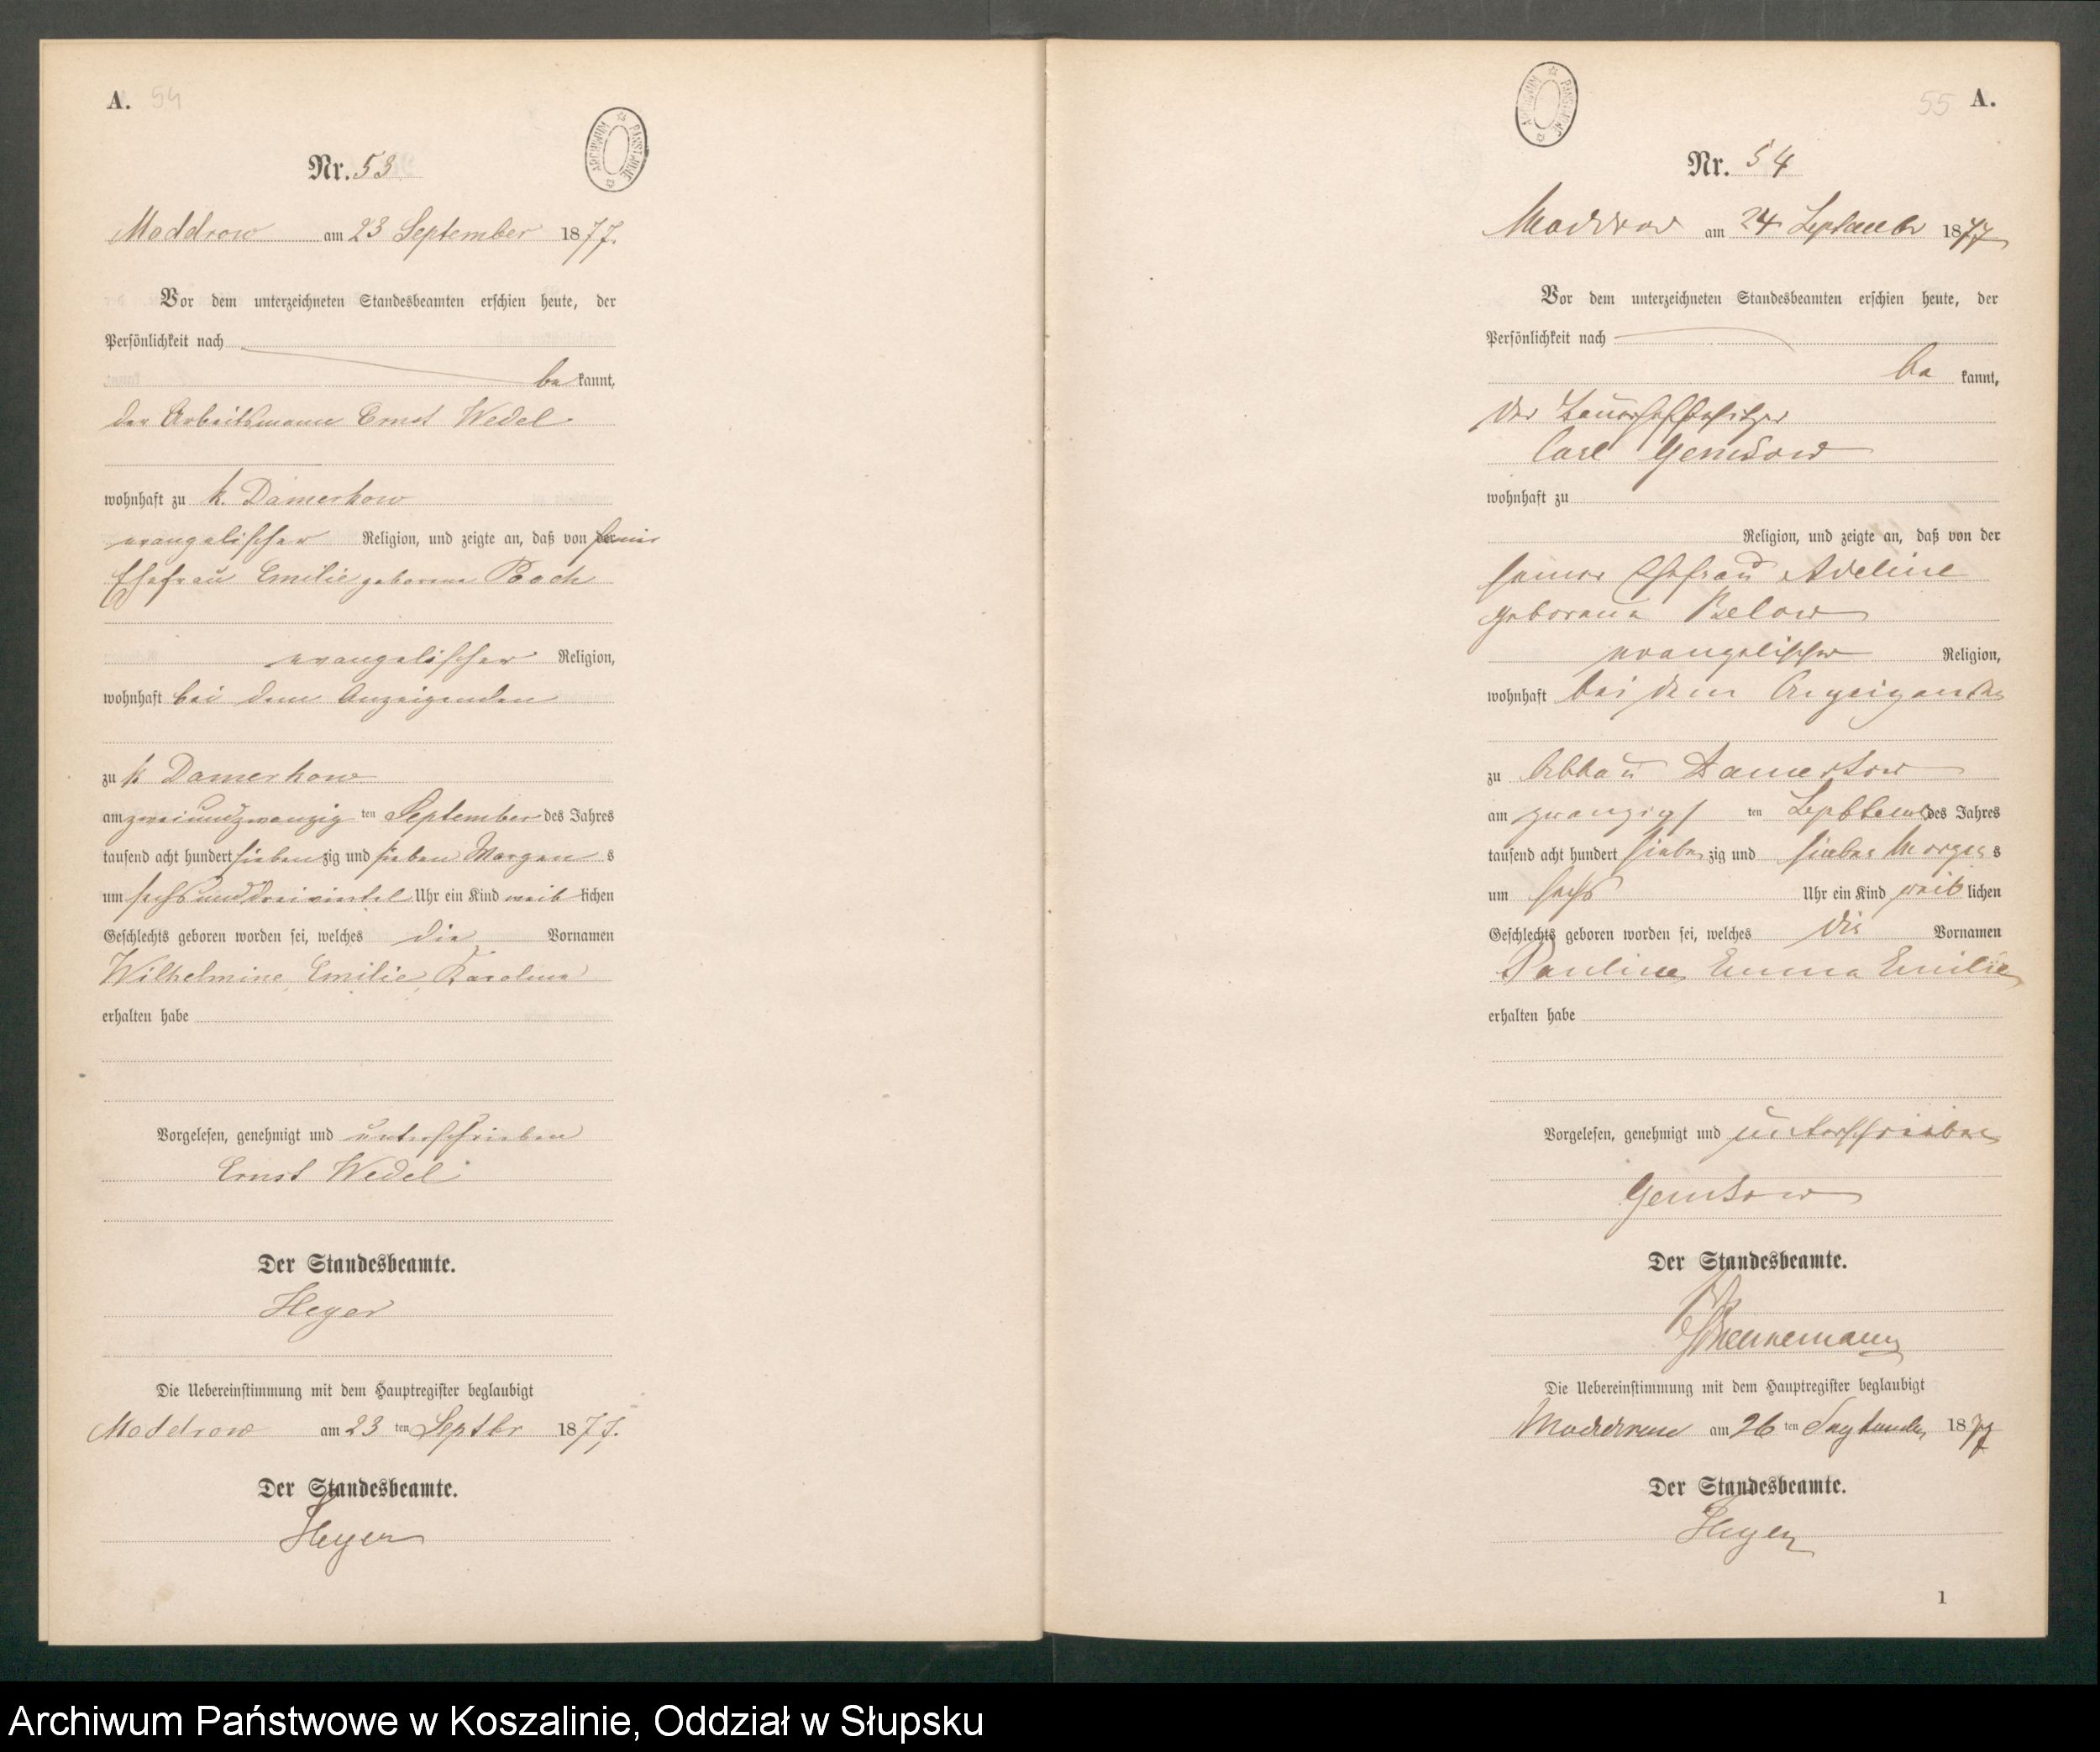 A. 54
ARCHIWUM PAŃSTWOWE
Nr. 53
Moddrow am 23 September 1877.
Vor dem unterzeichneten Standesbeamten erschien heute, der
Persönlichkeit nach
be kannt,
der Arbeitsmann Ernst Wedel
wohnhaft zu k. Damerkow
evangelischer Religion, und zeigte an, daß von der seiner
Ehefrau Emilie geborene Poock
evangelischer Religion,
wohnhaft bei dem Anzeigenden
zu k. Damerkow
am zweiundzwanzig ten September des Jahres
tausend acht hundert sieben zig und sieben Morgen s
um sechs und dreiviertel Uhr ein Kind weib lichen
Geschlechts geboren worden sei, welches die Vornamen
Wilhelmine, Emilie, Karoline
erhalten habe
Vorgelesen, genehmigt und unterschrieben
Ernst Wedel
Der Standesbeamte.
Heyer
Die Uebereinstimmung mit dem Hauptregister beglaubigt
Moddrow am 23 ten Septbr 1877.
Der Standesbeamte.
Heyer
55 A.
ARCHIWUM PAŃSTWOWE
Nr. 54
Moddrow am 24 September 1877
Vor dem unterzeichneten Standesbeamten erschien heute, der
Persönlichkeit nach
be kannt,
der
Carl Gemkow
wohnhaft zu
Religion, und zeigte an, daß von der
seiner Ehefrau Adeline
geborene Below
evangelischer Religion,
wohnhaft bei dem Anzeigenden
zu Abbau Damerkow
am zwanzigs ten September des Jahres
tausend acht hundert sieben zig und sieben Morgen s
um sechs Uhr ein Kind weib lichen
Geschlechts geboren worden sei, welches die Vornamen
Pauline Emma Emilie
erhalten habe
Vorgelesen, genehmigt und unterschrieben
Gemkow
Der Standesbeamte.
Die Uebereinstimmung mit dem Hauptregister beglaubigt
Moddrow am 26 ten September 1877
Der Standesbeamte.
Heyer
1
Archiwum Państwowe w Koszalinie, Oddział w Słupsku